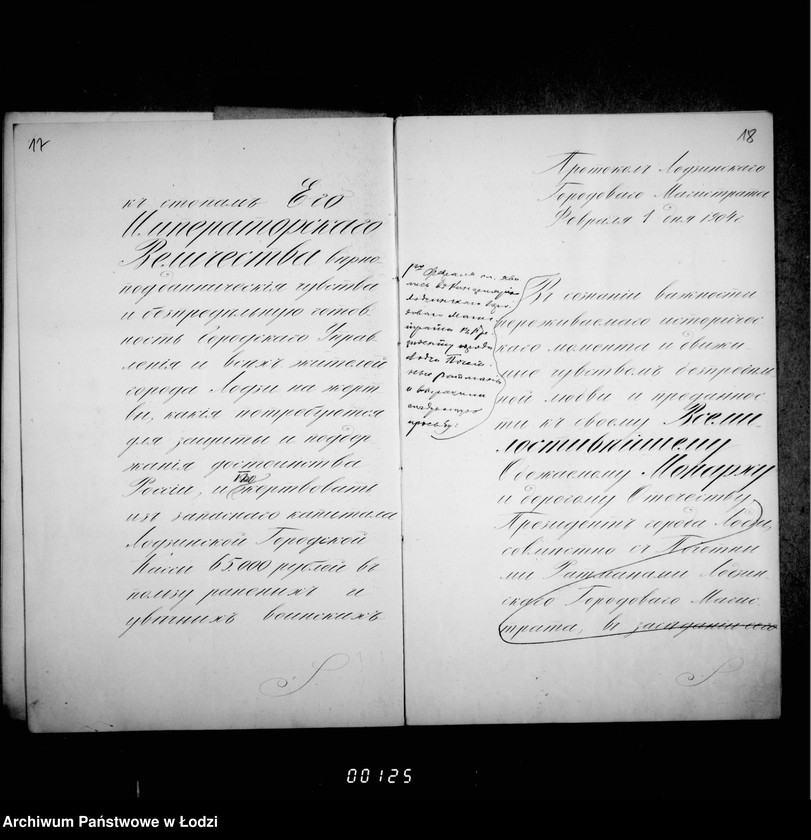 17
къ стопамъ Его
Императорскаго
Величества вѣрно
подданническія чувства
и безпредѣльную готов
ность Городского Управ
ленія и всѣхъ жителей
города Лодзи на жерт
вы, какія потребуются
для защиты и поддер
жанія достоинства
Россіи, и жертвовать
изъ запаснаго капитала
Лодзинской Городской
Кассы 65.000 рублей въ
пользу раненыхъ и
увѣчныхъ воинскихъ
18
Протоколъ Лодзинскаго
Городоваго Магистрата
Февраля 1 дня 1904 г
1го Февраля
лись въ Канцелярію
Лодзинскаго Горо
доваго Магис
трата къ Пре
зиденту города
Лодзи Почет
ные ратманы
и выразили
слѣдующую
просьбу:
Въ сознаніи важности
переживаемаго историчес
каго момента и движи
мые чувствомъ безпредѣль
ной любви и преданнос
ти къ своему Всеми
лостивѣйшему
Обожаемому Монарху
и дорогому Отечеству
Президентъ города Лодзи,
совмѣстно съ Почетны
ми Ратманами Лодзин
скаго Городоваго Магис
трата, въ засѣданіи сего
00125
Archiwum Państwowe w Łodzi